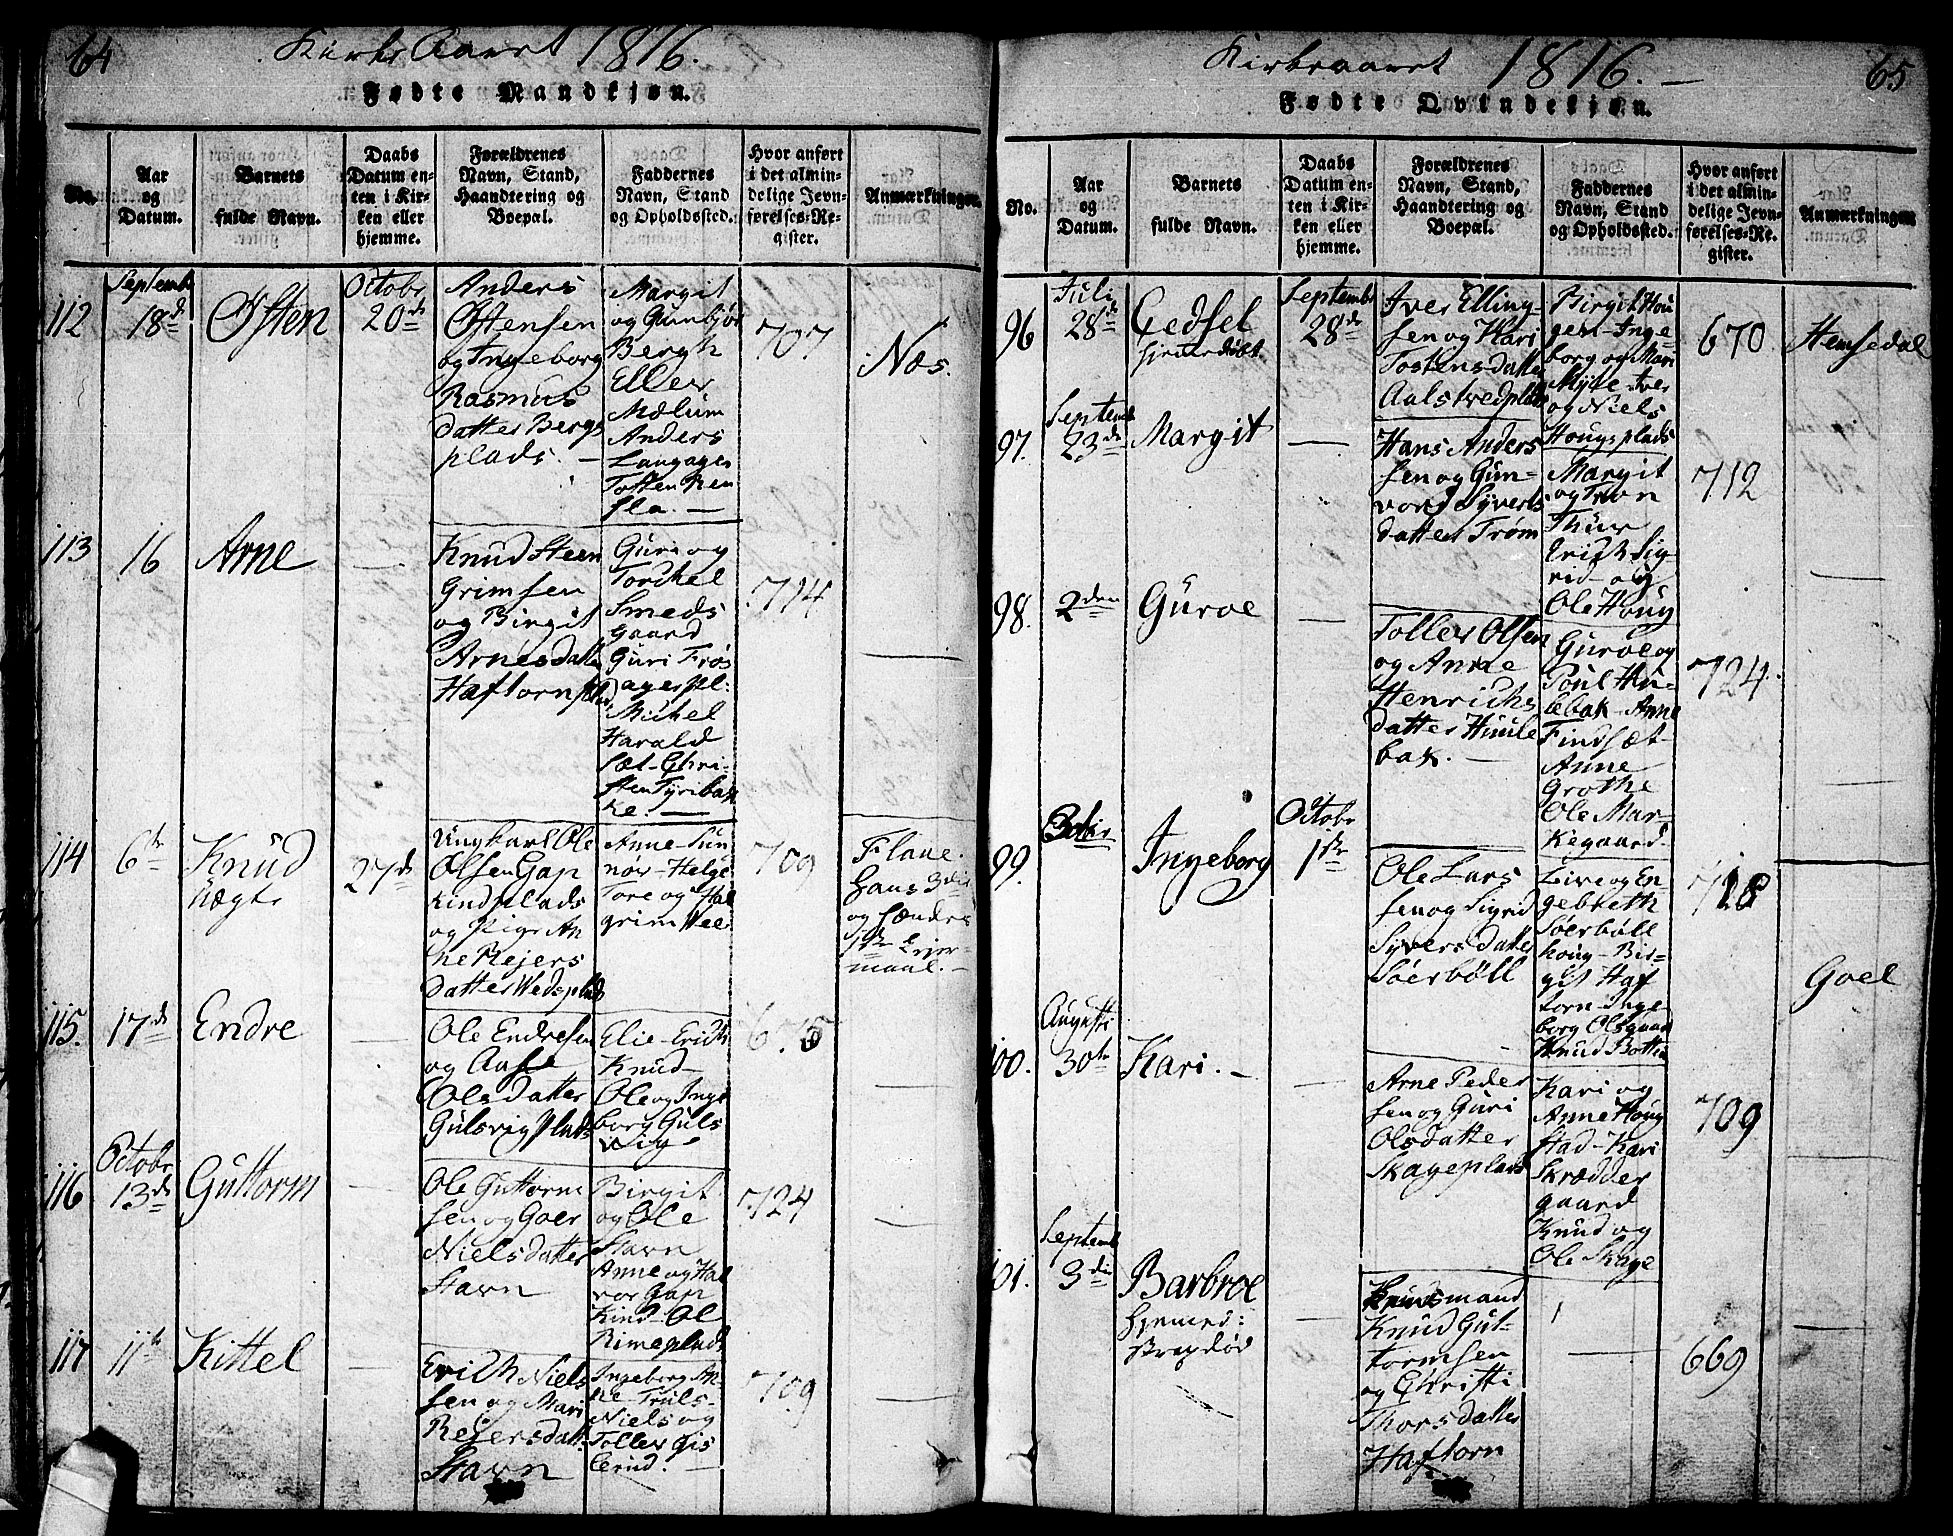 64
Kirke Aaret 1816.
Fødte Mandkjøn.
No.
Aar og Datum.
Barnets fulde Navn.
Daabs Datum enten i Kirken eller hjemme.
Forældrenes Navn, Stand, Haandtering og Boepæl.
Faddernes Navn, Stand og Opholdssted.
Hvor anført i det almindelige Jevnførelses-Register.
Anmærkninger.
112
Septembr
18de
Østen
Octobr
20de
Anders
Østensen
og Ingeborg
Rasmus
datter Bergs
plads. -
Margit
og Gunbjør
Bergh
Eller
Mælum
Anders
Langager
Tosten Ren
sla. -
707
Næs.
113
16
Arne
—
Knud Steen
Grimsen
og Birgit
Arnesdatter
Haftorn
Guri og
Torchel
Smeds
Gaard
Guri Frøs
agerpl:
Michel
Harald
sæt - Chri-
sten Tyribak
ke. —
714
—
114
6te
Knud
uægte
27de
Ungkarl Ole
Olsen Gap
kindplads
og Pige An
ne Rejers
datter Wedsplads
Anne - Gun
nör - Helge
Tore og Hal
grim Wee
709
Flaae.
hans 3die
og hændes
1ste Lejer-
maal. -
115.
17de
Endre
—
Ole Endresen
og Aase
Olsdatter
Gulsvig Plads
Elie - Erich
Knud -
Ole og Inge
borg Guls
vig -
—
116
Octobr
13de
Guttorm
—
Ole Guttorm
sen og Goer
Nielsdatter
Stavn
Birgit
og Ole
Stavn
Anne og Hal
vor Gap
kind - Ol
Rimeplads
724
—
117
11te
Kittel
—
Erich Niels
sen og Mari
Rejersdatt:
Stavn
Ingeborg An-
ne - Truls -
Niels og
Toller Gis
lerud. -
709
—
65
Kirkeaaret 1816. —
Fødte Qvindekjøn.
No.
Aar og Datum.
Barnets fulde Navn.
Daabs Datum enten i Kirken eller hjemme.
Forældrenes Navn, Stand, Haandtering og Boepæl.
Faddernes Navn, Stand og Opholdssted.
Hvor anført i det almindelige Jevnførelses-Register.
Anmærkninger
96
Juli
28de
Gedsel
hjemmedøbt
Septembr
28de
Iver Elling-
sen og Kari
Tostensdatter
Aalstvedplds
Birgit Hou
gen - Inge
borg og Mari
Myte - Iver
og Niels
Hougsplads
670
Hemsedal
97.
Septemb
23de
Margit
—
Hans Anders
sen og Gun-
vord Syverts
datter Trøm
Margit
og Tron
Thuer
Erich Sig-
rid - og
Ole Houg
712
—
98.
2den
Guroe
—
Toller Olsen
og Anne
Henrichs
datter Humle
bak. -
Guroe og
Poul Hu-
lebak - Anne
Findsæt -
Anne
Grothe
Ole Mar-
kegaard.
724.
—
99.
Ingeborg
Octobr
1ste
Ole Lars
sen og Sigrid
Syversdatter
Söerböll
Live og En-
gebreth
Söerböll
houg - Bir-
git Haf
torn - Inge
borg Olsgaard
Knud Botten
718
Goel
100.
Augusti
30te
Kari. -
—
Arne Peder
sen og Guri
Olsdatter
Skageplads
Kari og
Anne Houg
stad - Kari
Skrædder
gaard
Knud og
Ole Skage
709
—
101.
Septemb
3die
Barbroe
hjemmed:
strax død
—
Huusmand
Knud Gut-
tormsen
og Christi
Thorsdatter
Haftorn
—
669
—